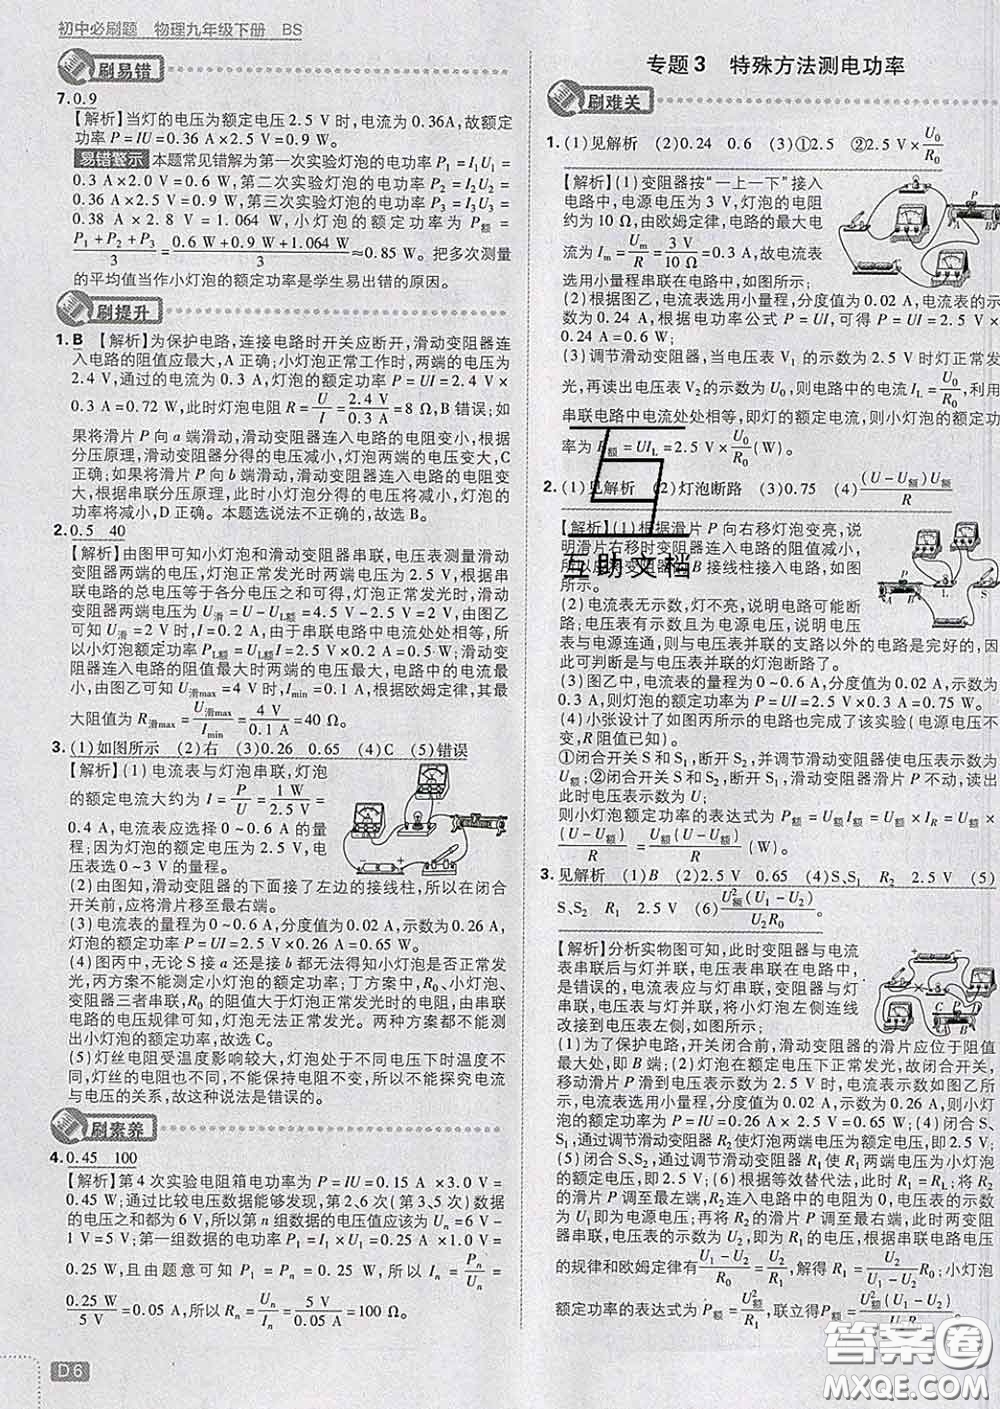 初中必刷题 物理九年级下册 BS
刷易错
7.0.9
【解析】当灯的电压为额定电压2.5 V时,电流为0.36A,故额定
功率P=IU=0.36 A×2.5 V=0.9 W。
易错警示 本题常见错解为第一次实验灯泡的电功率P₁=I₁U₁=
0.3 A×2.0 V=0.6 W,第二次实验灯泡的电功率P₂=I₂U₂=
0.36 A×2.5 V=0.9 W,第三次实验灯泡的电功率P₃=I₃U₃=
0.38 A×2.8 V=1.064 W,小灯泡的额定功率为P额=
(P₁+P₂+P₃)/3=(0.6 W+0.9 W+1.064 W)/3≈0.85 W。把多次测量
的平均值当作小灯泡的额定功率是学生易出错的原因。
刷提升
1.B 【解析】为保护电路,连接电路时开关应断开,滑动变阻器连
入电路的阻值应最大,A正确;小灯泡正常工作时,两端的电压为
2.4 V,通过的电流为0.3 A,灯泡的额定功率P=UI=2.4 V×
0.3 A=0.72 W,此时灯泡电阻R=U/I=2.4 V/0.3 A=8 Ω,B错误;如
果将滑片P向a端滑动,滑动变阻器连入电路的电阻变小,根据
分压原理,滑动变阻器分得的电压减小,灯泡两端的电压变大,C
正确;如果将滑片P向b端滑动,滑动变阻器连入电路的电阻变大,
根据串联分压原理,此时小灯泡分得的电压将减小,灯泡的
功率将减小,D正确。本题选说法不正确的,故选B。
2.0.5 40
【解析】由图甲可知小灯泡和滑动变阻器串联,电压表测量滑动
变阻器两端的电压,灯泡正常发光时两端电压为2.5 V,根据串联
电路的总电压等于各分电压之和可得,灯泡正常发光时,滑动变
阻器两端的电压U滑=U-UL额=4.5 V-2.5 V=2 V,由图乙
可知U滑=2 V时,I=0.2 A,由于串联电路中电流处处相等,所
以小灯泡额定功率PL额=UL额I=2.5 V×0.2 A=0.5 W;滑动
变阻器连入电路的阻值最大时两端的电压最大,电路中的电流最
小,由图乙可知U滑max=4 V时,Imin=0.1 A,根据欧姆定律,其最
大阻值为R滑max=U滑max/Imin=4 V/0.1 A=40 Ω。
3.(1)如图所示 (2)右 (3)0.26 0.65 (4)C (5)错误
【解析】(1)电流表与灯泡串联,灯泡
的额定电流大约为I=P/U=1 W/2.5 V=
0.4 A,电流表应选择0~0.6 A的量
程;因为灯泡的额定电压为2.5 V,电
压表选0~3 V的量程。
(2)由图知,滑动变阻器的下面接了左边的接线柱,所以在闭合
开关前,应将滑片移至最右端。
(3)电流表的量程为0~0.6 A,分度值为0.02 A,示数为0.26 A,
灯泡的额定功率P=UI=2.5 V×0.26 A=0.65 W。
(4)图丙中,无论S接a还是接b都无法得知小灯泡是否正常发
光,丙方案不能测定小灯泡的额定功率;丁方案中,R₀、小灯泡、
变阻器三者串联,R₀的阻值大于灯泡正常发光时的电阻,由串联
电路的电压规律可知,灯泡无法正常发光。两种方案都不能测
出小灯泡的额定功率,故选C。
(5)灯丝电阻受温度影响较大,灯泡处于不同电压下时温度不
同,灯丝的电阻变化较大,不能保证电阻不变,所以不能探究电流
与电压的关系,故这种说法是错误的。
刷素养
4.0.45 100
【解析】第4次实验电阻箱电功率为P=IU=0.15 A×3.0 V=
0.45 W;通过比较电压数据能够发现,第2、6次(第3、5次)数据
的电压之和都为6 V,所以第n组数据的电压值应该为Uₙ=6 V-
1 V=5 V;第一组数据的电功率P₁=I₁×U₁=0.25 A×1.0 V=
0.25 W,且由题意可知P₁=Pₙ=0.25 W,所以Iₙ=Pₙ/Uₙ=
0.25 W/5 V=0.05 A,所以Rₙ=Uₙ/Iₙ=5 V/0.05 A=100 Ω。
D6
专题3 特殊方法测电功率
刷难关
1.(1)见解析 (2)0.24 0.6 (3)①2.5 ②2.5 V×U₀/R₀
【解析】(1)变阻器按“一上一下”接入
电路中,电源电压为3 V,灯泡的电阻
约为10 Ω,由欧姆定律,电路的最大电
流为Iₘ=Uₘ/R=3 V/10 Ω=0.3 A,故电流表
选用小量程串联在电路中,如图所示。
(2)根据图乙,电流表选用小量程,分度值为0.02 A,电流表的示
数为0.24 A,根据电功率公式P=UI,可得P=UI=2.5 V×
0.24 A=0.6 W;
(3)调节滑动变阻器,当电压表V₁的示数为2.5 V时灯正常发
光,再读出电压表V₂的示数为U₀,则电路中的电流IL=U₀/R₀,利用
串联电路中电流处处相等,即灯的额定电流,则小灯泡的额定功
率为P额=UIL=2.5 V×U₀/R₀(W)。
2.(1)见解析 (2)灯泡断路 (3)0.75 (4)(U-U额)U额/R
【解析】(1)根据滑片P向右移灯泡变亮,说
明滑片右移时变阻器连入电路的阻值减小,
所以应将变阻器的B接线柱接入电路,如图
所示。
(2)电流表无示数,灯不亮,说明电路可能断
路;电压表有示数且为电源电压,说明电压
表与电源连通,则与电压表并联的支路以外的电路是完好的,因
此可判断是与电压表并联的灯泡断路了。
(3)图乙中,电流表的量程为0~0.6 A,分度值为0.02 A,示数为
0.3 A,则灯泡的额定功率为P=UI=2.5 V×0.3 A=0.75 W。
(4)小张设计了如图丙所示的电路也完成了该实验(电源电压不
变,R阻值已知)。
①闭合开关S和S₁,断开S₂,并调节滑动变阻器使电压表示数为
U额;②闭合开关S和S₂,断开S₁,滑动变阻器滑片P不动,读出
此时电压表示数为U;
则小灯泡额定功率的表达式为P额=U额I额=U额×IR=U额×
(U-U额)/R=U额(U-U额)/R(W)。
3.见解析 (1)B (2)2.5 0.65 (4)S、S₁ R₂ 2.5 V (5)
S、S₂ R₁ 2.5 V (6)U额²(U₁-U₂)/U₂R₀
【解析】分析实物图可知,此时变阻器与电流
表串联后与灯并联,电压表串联在电路中,
是错误的,电流表应与灯串联,变阻器与灯串
联,电压表与灯并联,将小灯泡左侧连线
改接到电压表左侧,如图所示:
(1)为了保护电路,开关闭合前,滑动变阻器的滑片应位于阻值
最大处,即B端;(2)灯泡在额定电压下正常发光,故闭合开关,
移动滑片P到电压表示数为2.5 V时,电流表示数如图乙所
示,电流表选用小量程,分度值为0.02 A,示数为0.26 A,则小灯
泡的额定功率为P=IU=0.26 A×2.5 V=0.65 W;(4)闭合S、
S₁,通过调节滑动变阻器R₂使灯泡两端电压为额定电压,即2.5 V;
(5)闭合S、S₂,通过调节滑动变阻器R₁使电压表示数为灯泡的额定
电压,即2.5 V;(6)根据等效替代法,此时R₁=RL;将R₂
的滑片P调至最左端,R₂连入电路中的电阻为0,电压表的示数
为U₁,即为电源电压;再将R₂的滑片P调至最右端,此时两变阻
器串联,电压表的示数为U₂,即为R₁两端电压,根据串联电路电压
的规律和欧姆定律有(U₁-U₂)/R₀=U₂/R₁,解得R₁=U₂/(U₁-U₂)R₀;小灯泡
额定功率的表达式为P额=U额²/R₁,联立得P额=U额²(U₁-U₂)/U₂R₀。
互助文档
答案圈
MXQE.COM